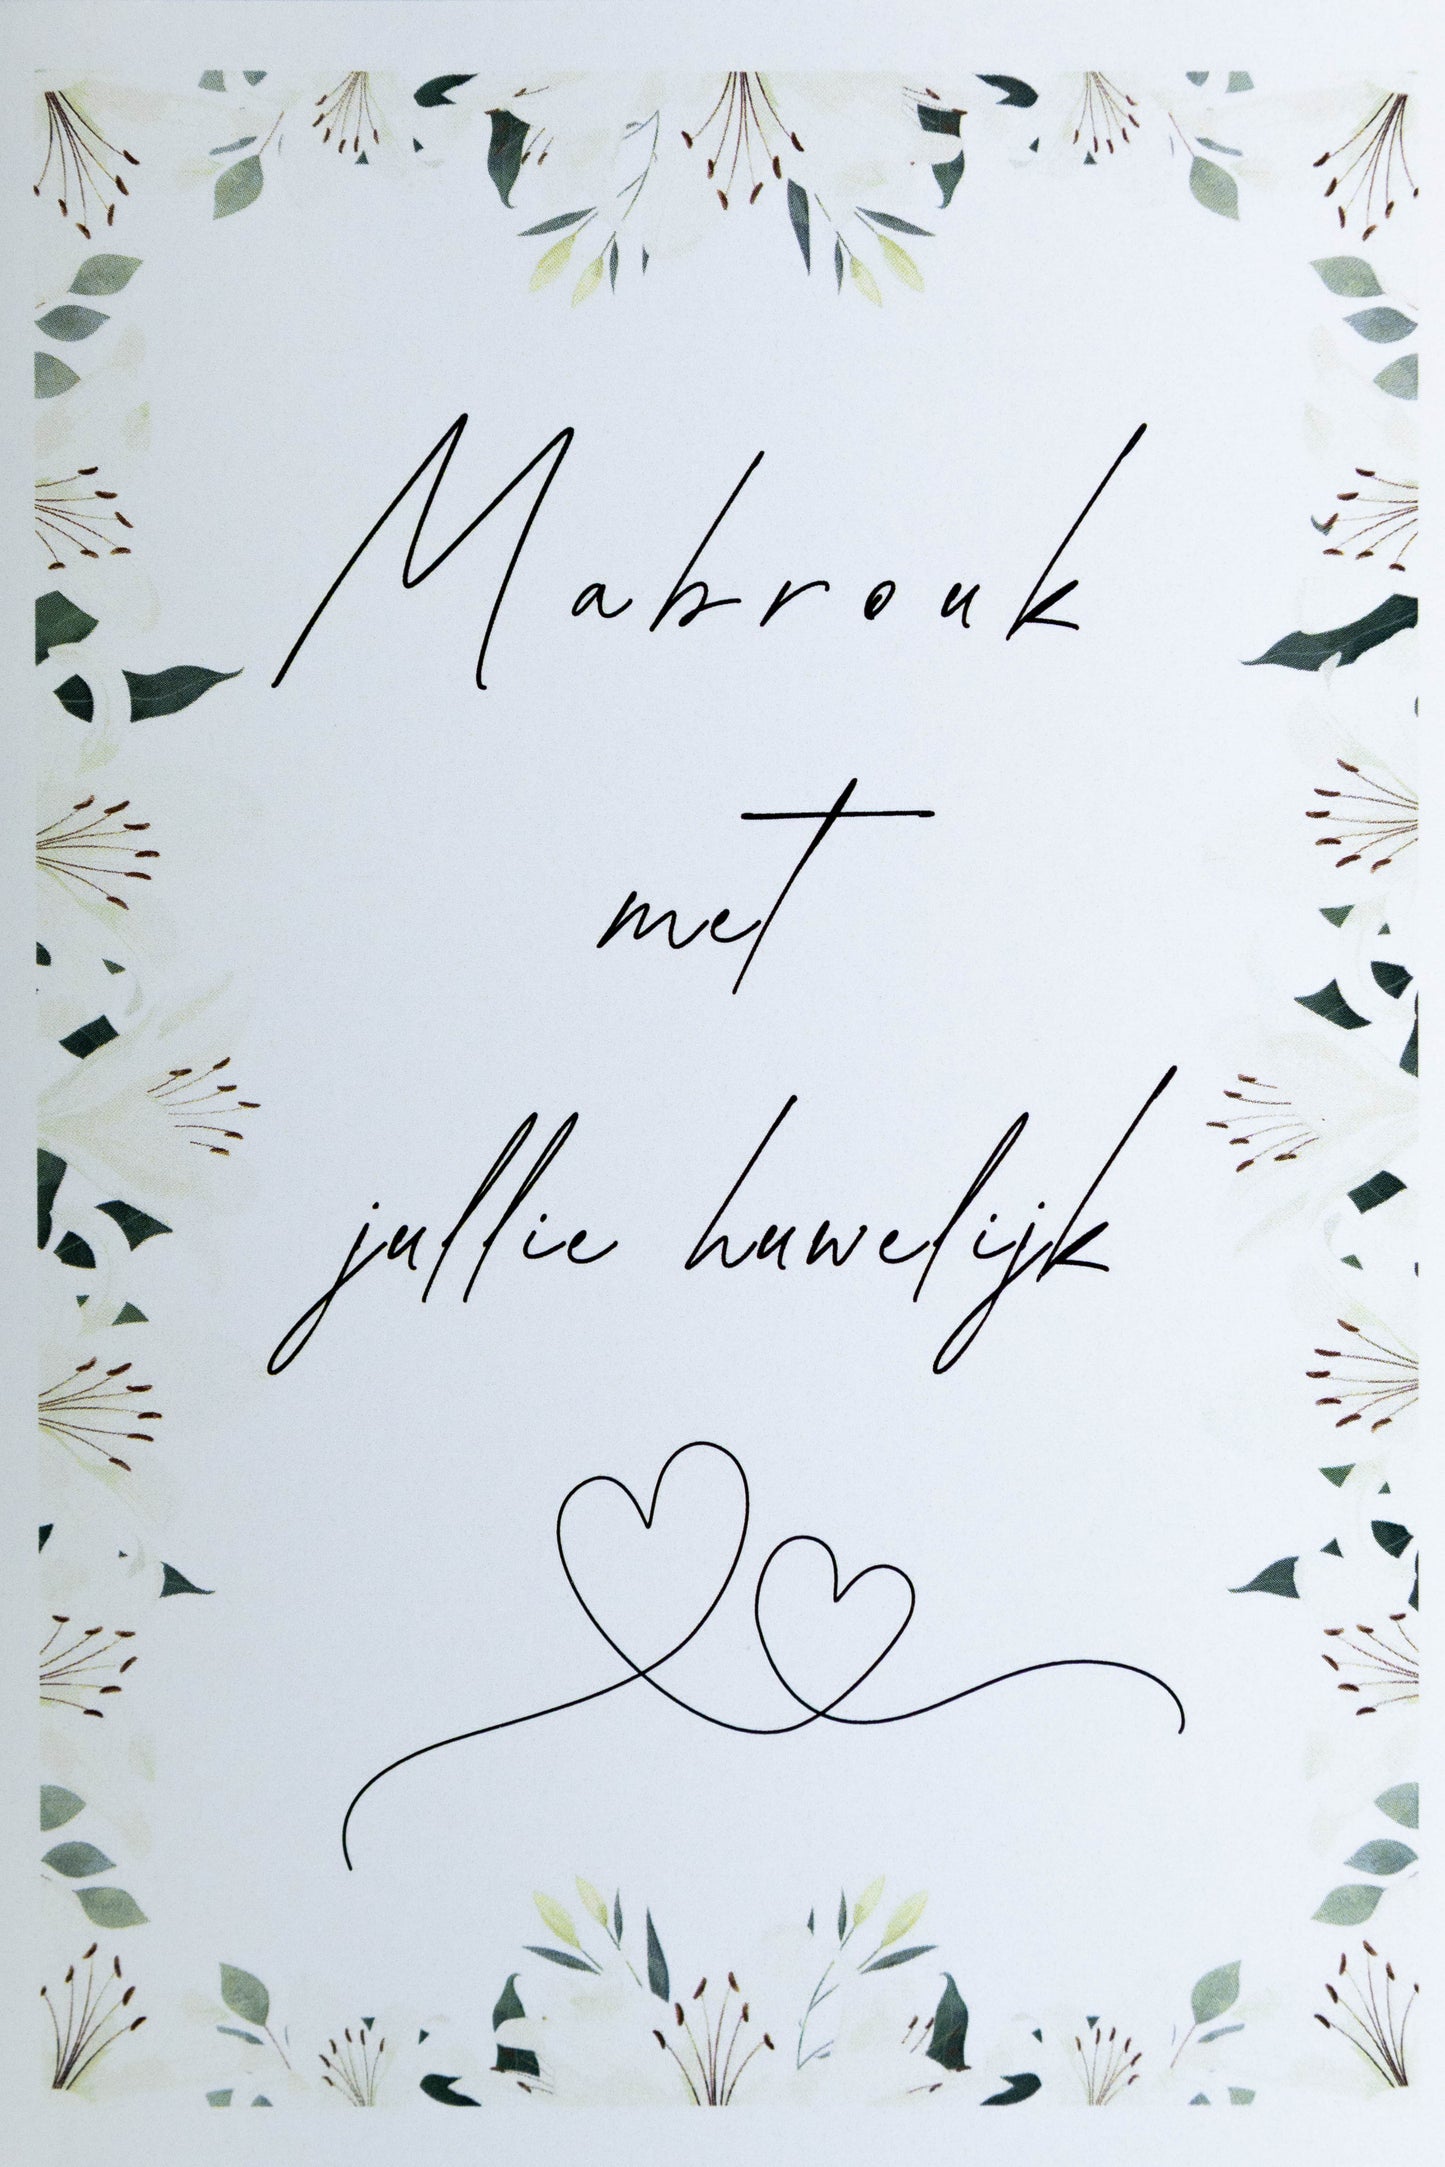 Mabrouk
met
jullie huwelijk